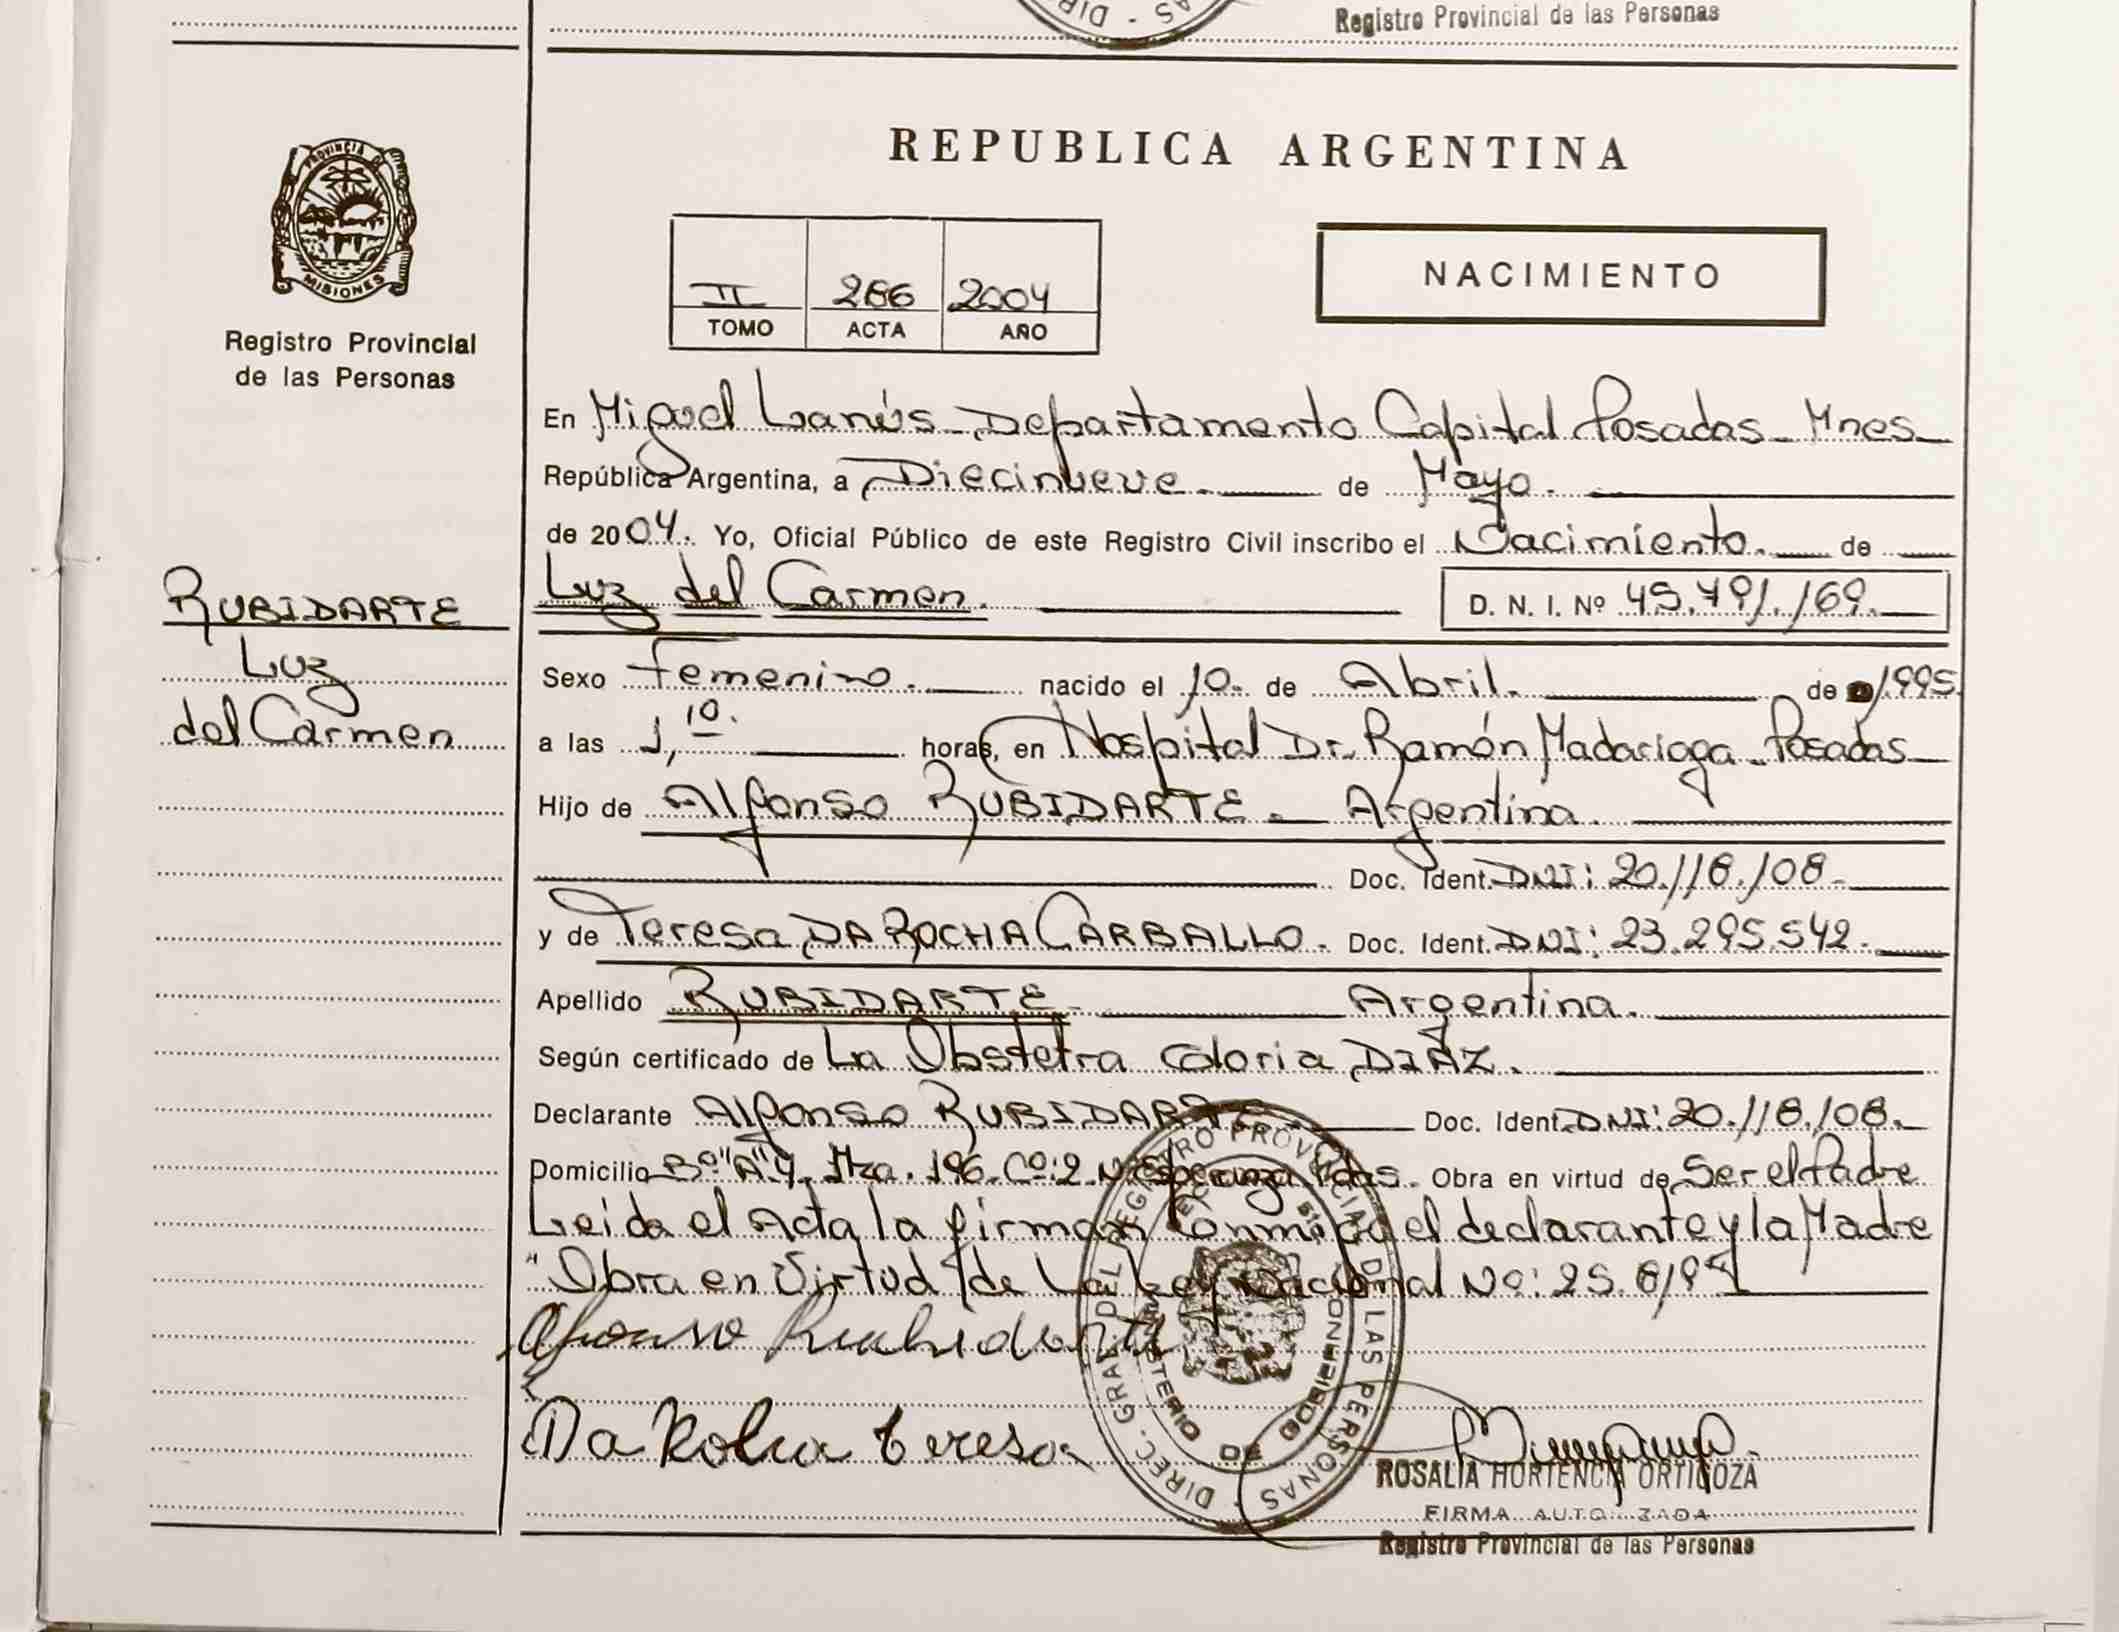 DIR - AS
Registro Provincial de las Personas
PROVINCIA DE
MISIONES
Registro Provincial
de las Personas
REPUBLICA ARGENTINA
II 266 2004
TOMO ACTA AÑO
NACIMIENTO
En Miguel Lanús - Departamento Capital Posadas - Mnes -
República Argentina, a Diecinueve. de Mayo.
de 2004. Yo, Oficial Público de este Registro Civil inscribo el Nacimiento. de
Luz del Carmen. D. N. I. Nº 45.491.169.
RUBIDARTE
Luz
del Carmen
Sexo Femenino. nacido el 10. de Abril. de 1995
a las 1,10. horas, en Hospital Dr. Ramón Madariaga - Posadas
Hijo de Alfonso RUBIDARTE. Argentina.
Doc. Ident. DNI: 20.118.108.
y de Teresa DA ROCHA CARBALLO. Doc. Ident. DNI: 23.295.542.
Apellido RUBIDARTE Argentina.
Según certificado de La Obstetra Gloria DIAZ.
Declarante Alfonso RUBIDARTE Doc. Ident. DNI: 20.118.108.
Domicilio Bº "A" 4. Mza. 196. Cº: 2 Nª Esperanza Pdas. Obra en virtud de Ser el Padre
Leida el Acta la firman Conmigo el declarante y la Madre
"Obra en Virtud de La Ley Nacional Nº: 25.819"
Alfonso Rubidarte
Da Rocha teresa
DIREC. GRAL. DEL REGISTRO PROVINCIAL DE LAS PERSONAS
MINISTERIO DE GOBIERNO
ROSALIA HORTENCIA ORTIGOZA
FIRMA AUTORIZADA
Registro Provincial de las Personas